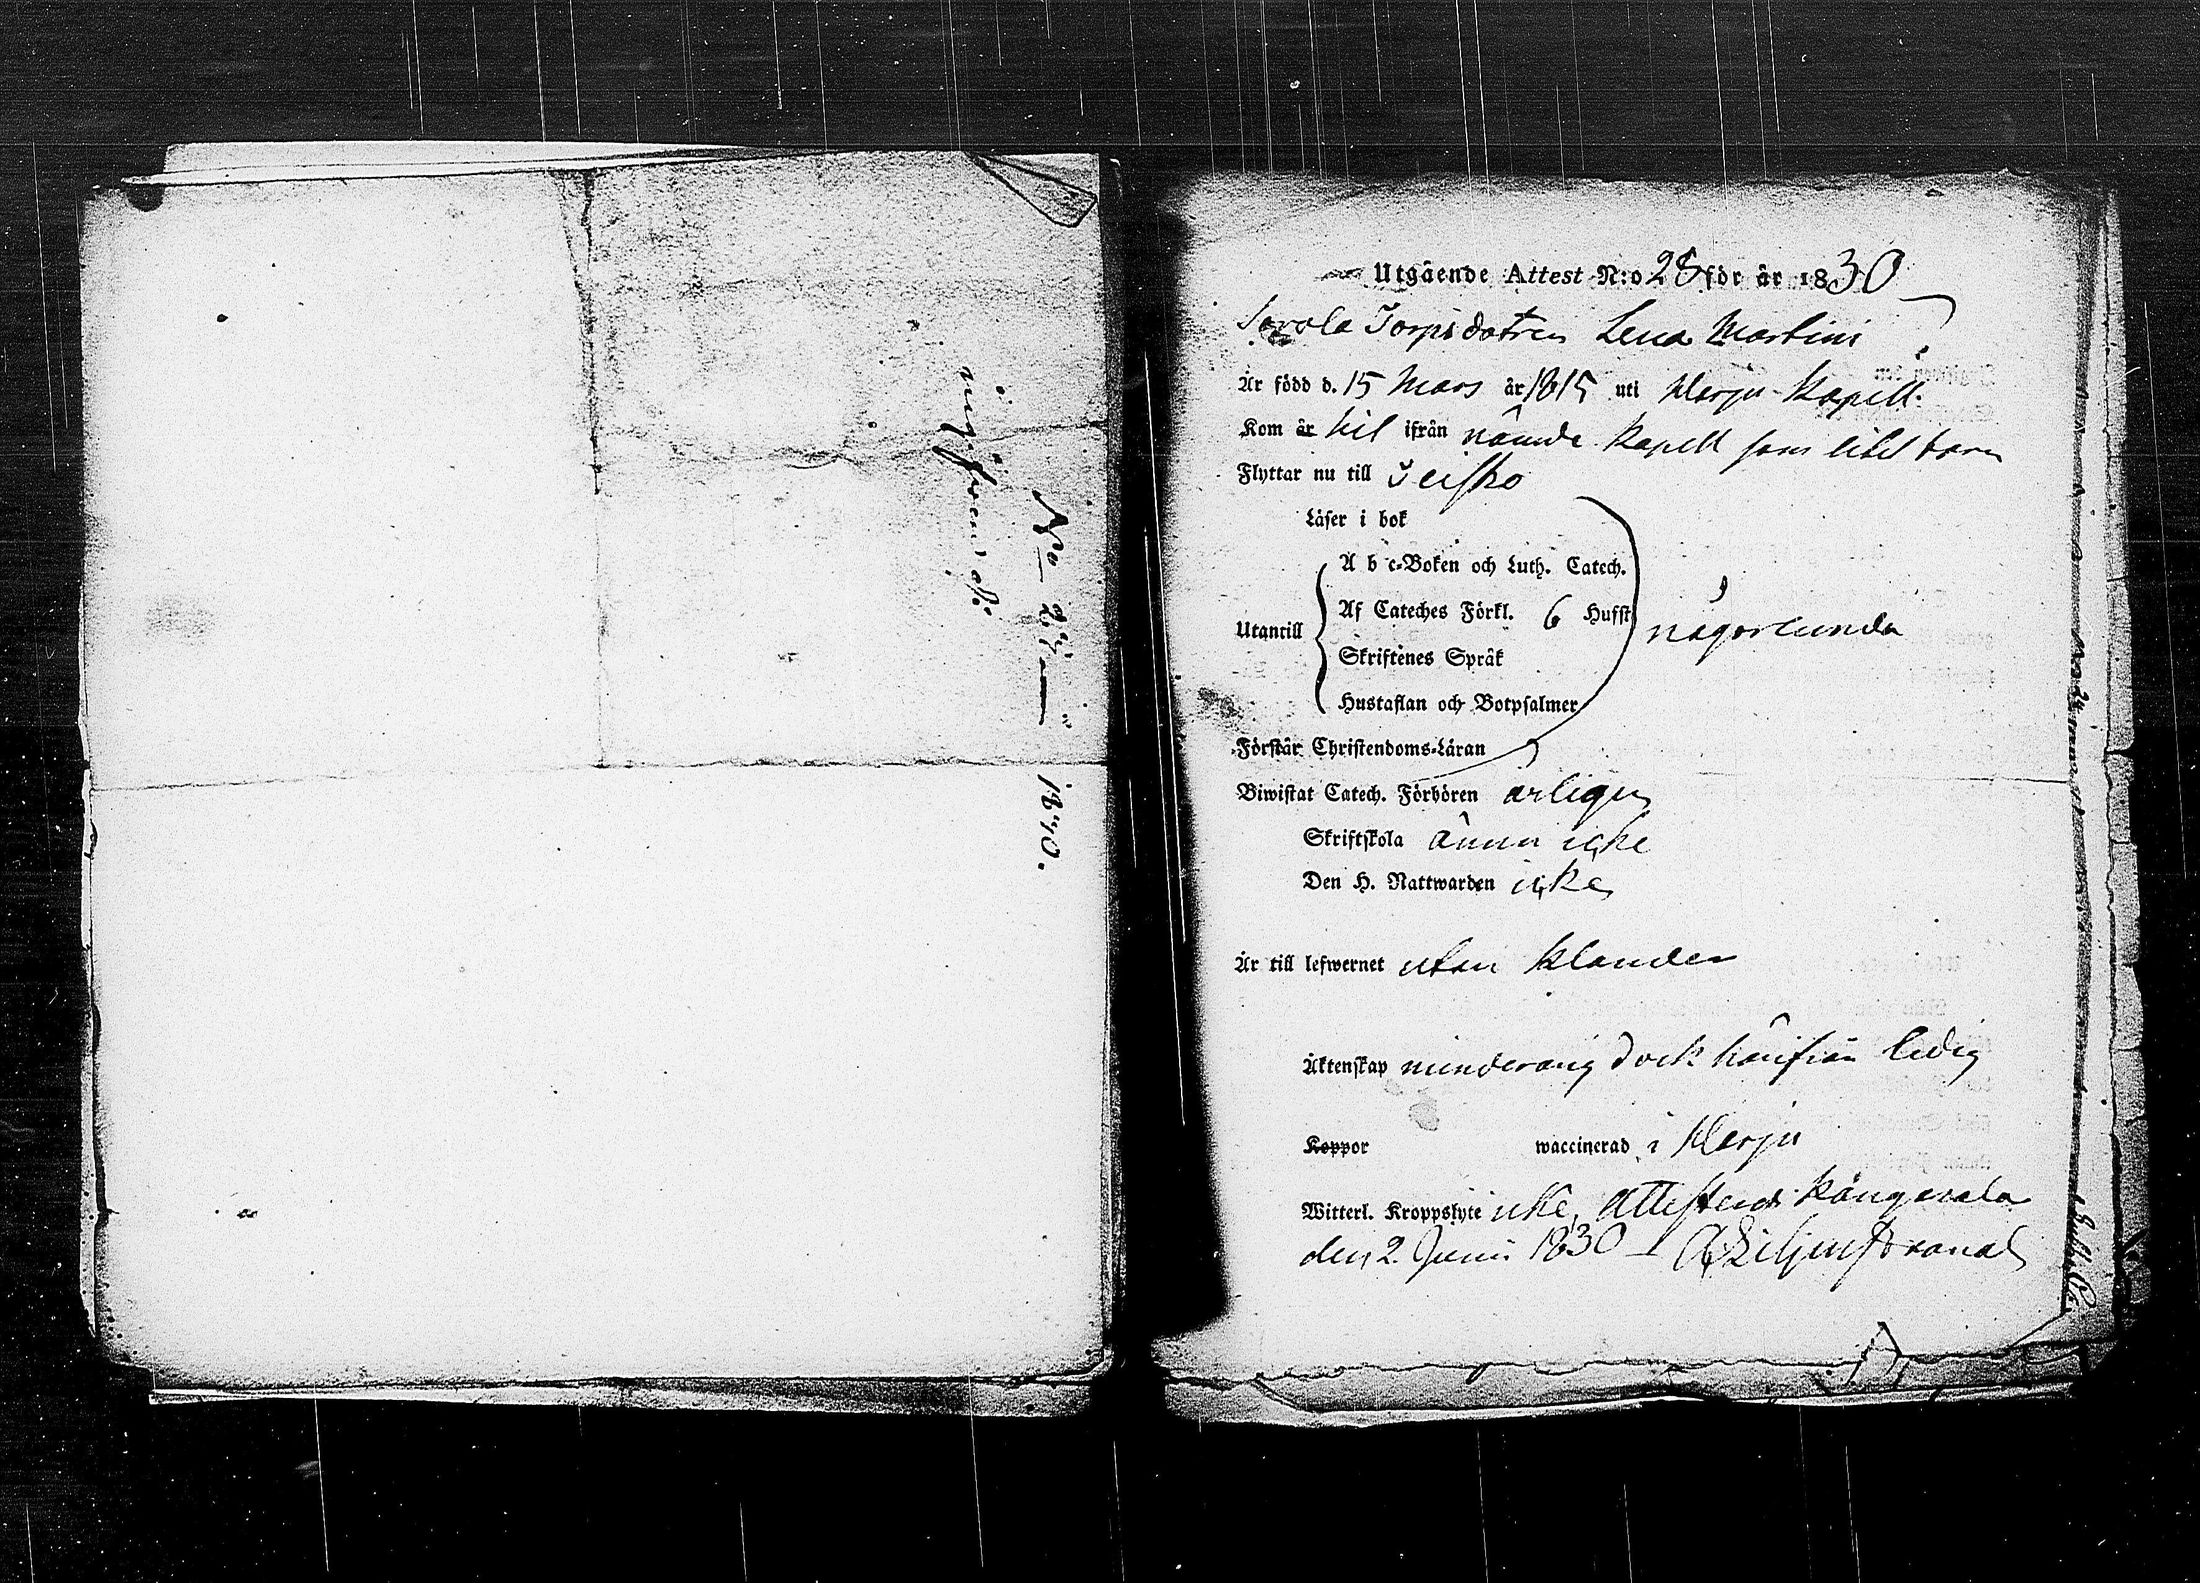 No 27
1830.
Utgående Attest N:o 28 för år 1830
Sorola Torpsdotren Lena Martini
Är född d. 15 Mars år 1815 uti Kapell.
Kom år hit ifrån nämde Kapell som litet barn
Flyttar nu till Teisko
Läser i bok
A b c-Boken och Luth. Catech.
Utantill Af Cateches Förkl. 6 Hufst någorlunda
Skriftenes Språk
Hustaflan och Botpsalmer
Förstår Christendoms-Läran
Biwistat Catech. Förhören årligen
Skriftskola ännu icke
Den H. Nattwarden icke
Är till lefwernet utan klander
Äktenskap minderårig dock härifrån ledig
Koppor waccinerad i
Witterl. Kroppslyte icke, Attesterar Kangasala
den 2 Junii 1830 Liljenstrand